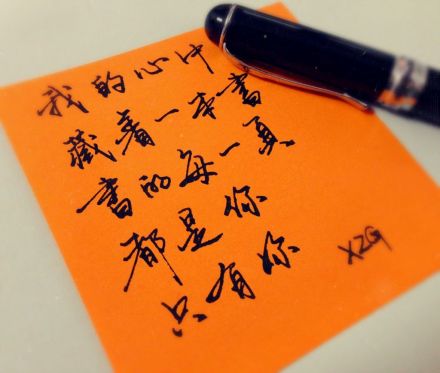 我的心中
藏着一本書
書的每一頁
都是你
只有你
XZG